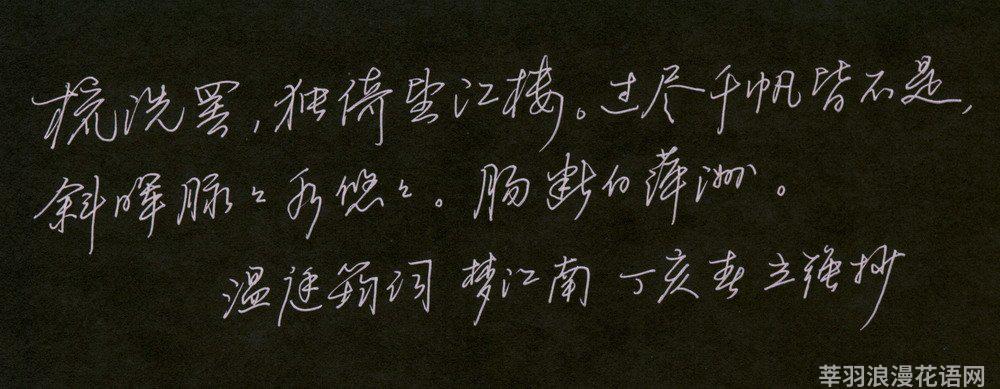 梳洗罢，独倚望江楼。过尽千帆皆不是，
斜晖脉々水悠々。肠断白蘋洲。
温庭筠词 梦江南 丁亥春立强抄
莘羽浪漫花语网